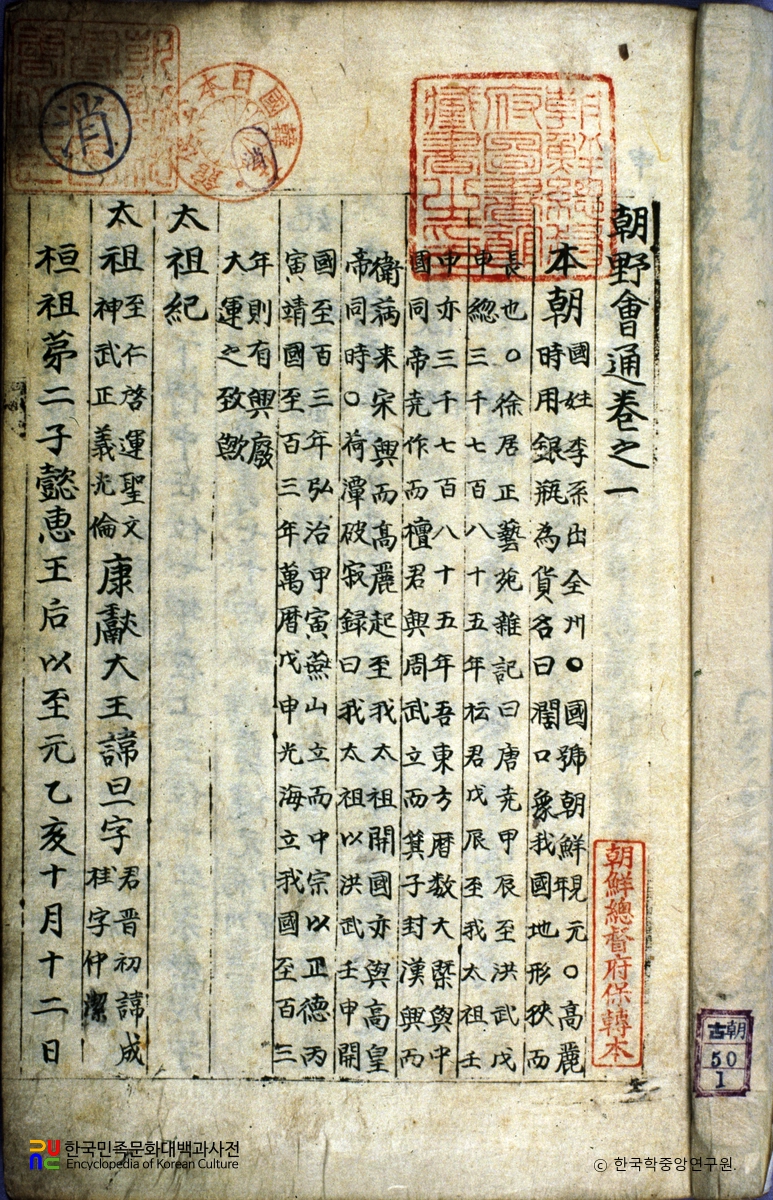 朝野會通卷之一
本朝
國姓李系出全州○國號朝鮮元○高麗
時用銀瓶為貨名曰濶口象我國地形狹而
長也○徐居正藝苑雜記曰唐堯甲辰至洪武戊
申緫三千七百八十五年枟君戊辰至我太祖壬
申亦三千七百八十五年吾東方曆數大槩與中
國同帝堯作而檀君興周武立而箕子封漢興而
衛滿来宋興而高麗起至我太祖開國亦與高皇
帝同時○荷潭破寂録曰我太祖以洪武壬申開
國至百三年弘治甲寅燕山立而中宗以正德丙
寅靖國至百三年萬曆戊申光海立我國至百三
年則有興廢
大運之致歟
太祖紀
太祖
至仁啓運聖文
神武正義光倫
康獻大王諱旦字
君晋初諱成
桂字仲潔
桓祖第二子懿惠王后以至元乙亥十月十二日
朝鮮總督府圖書館藏書之印
消
消
朝鮮總督府保轉本
古朝
50
1
한국민족문화대백과사전
Encyclopedia of Korean Culture
© 한국학중앙연구원.